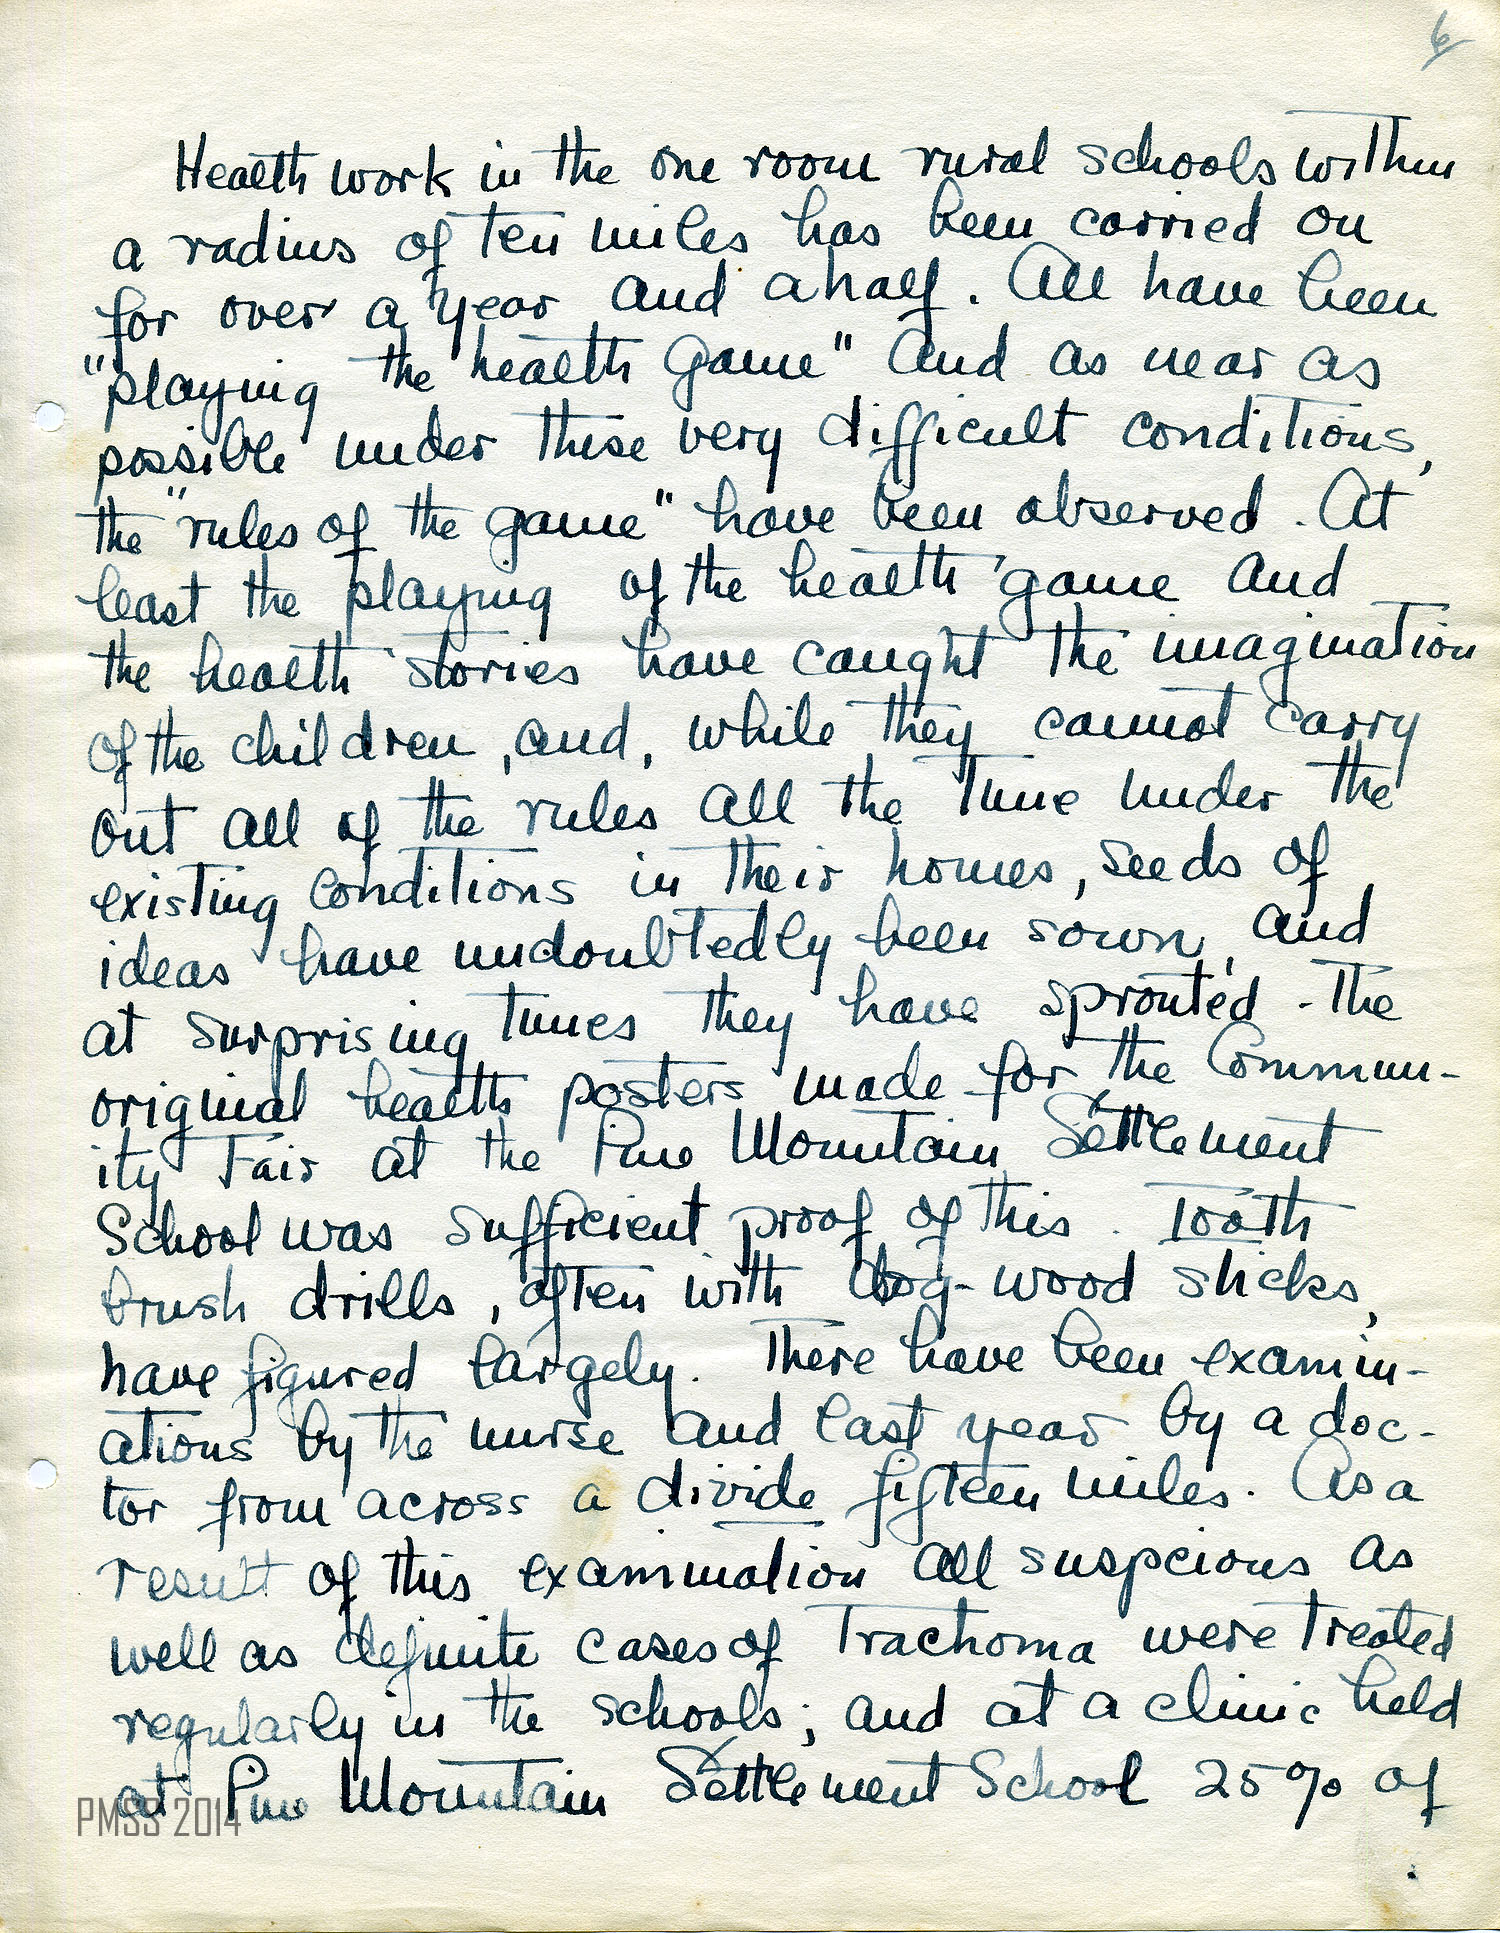 6
Health work in the one room rural schools within
a radius of ten miles has been carried on
for over a year and a half. All have been
"playing the health game" and as near as
possible under these very difficult conditions,
the "rules of the game" have been observed. At
least the playing of the health game and
the health stories have caught the imagination
of the children, and, while they cannot carry
out all of the rules all the time under the
existing conditions in their homes, seeds of
ideas have undoubtedly been sown, and
at surprising times they have sprouted. The
original health posters made for the Commun-
ity Fair at the Pine Mountain Settlement
School was sufficient proof of this. Tooth
brush drills, often with dog-wood sticks,
have figured largely. There have been examin-
ations by the nurse and last year by a doc-
tor from across a divide fifteen miles. As a
result of this examination all suspcious as
well as definite cases of Trachoma were treated
regularly in the schools; and at a clinic held
at Pine Mountain Settlement School 25% of
PMSS 2014